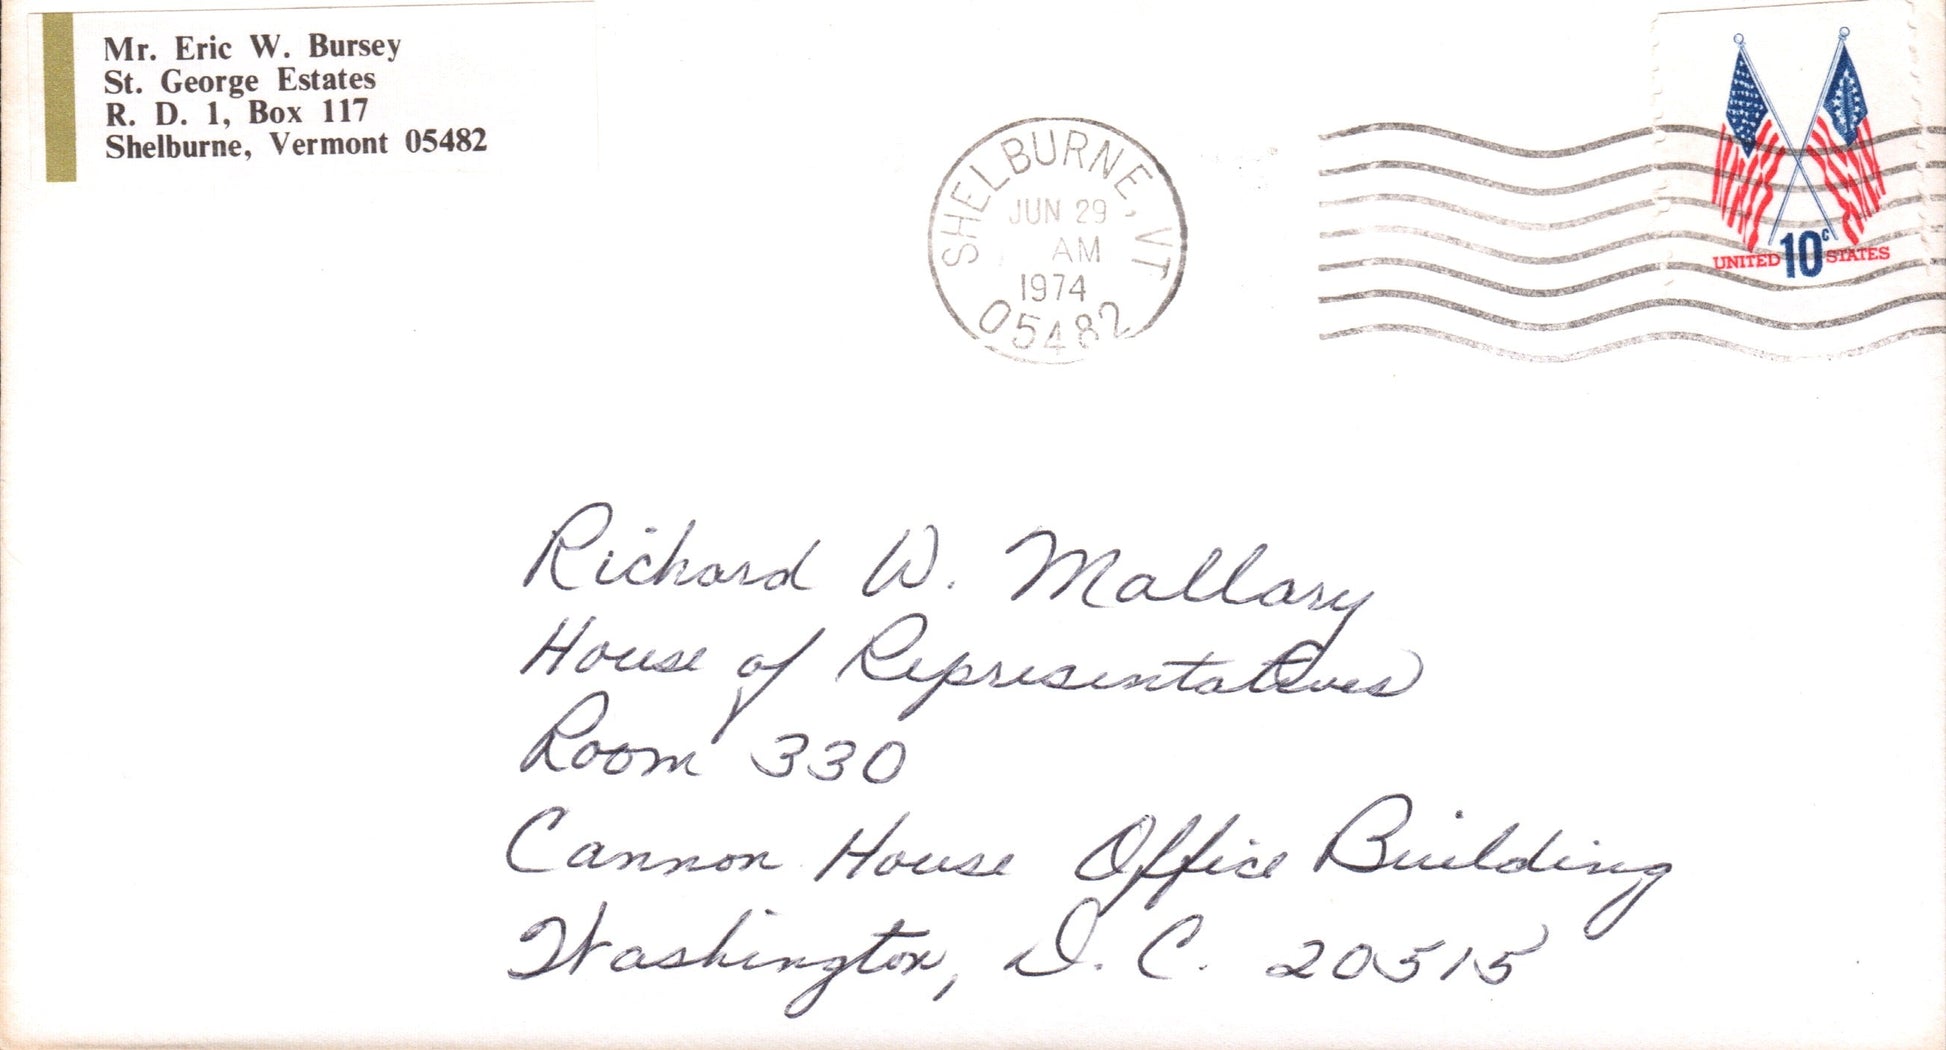 Mr. Eric W. Bursey
St. George Estates
R. D. 1, Box 117
Shelburne, Vermont 05482
SHELBURNE, VT
JUN 29
AM
1974
05482
10c
UNITED STATES
Richard W. Mallary
House of Representatives
Room 330
Cannon House Office Building
Washington, D. C. 20515